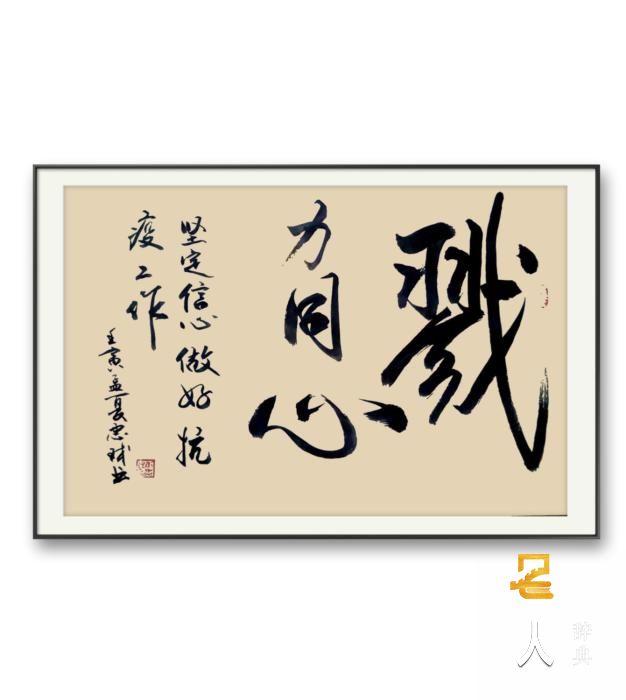 戮
力同心
坚定信心做好抗
疫工作
壬寅孟夏忠
人
辞典